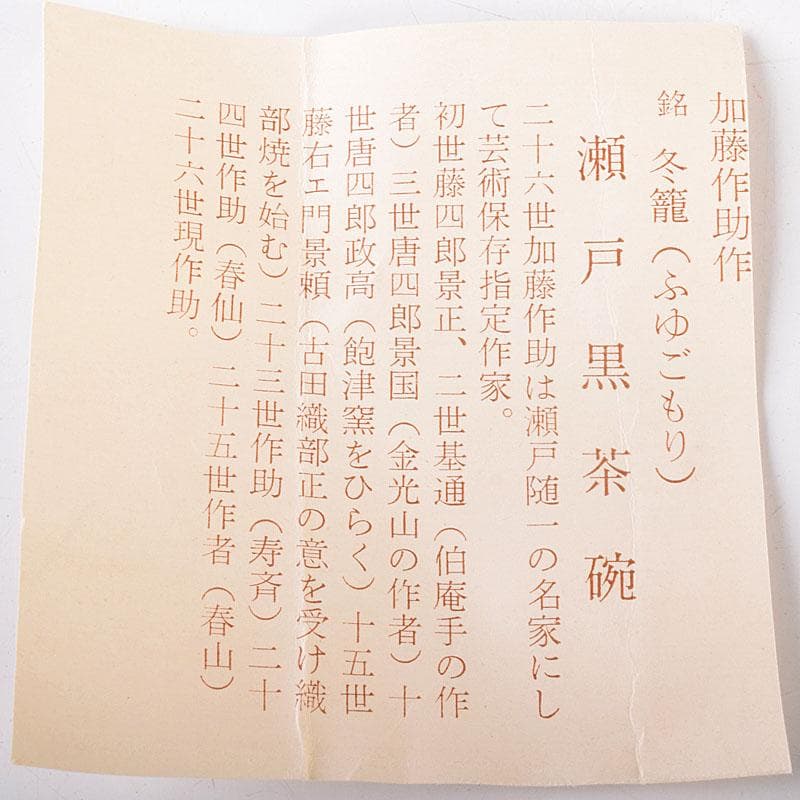 加藤作助作
銘　冬籠（ふゆごもり）
瀬戸黒茶碗
二十六世加藤作助は瀬戸随一の名家にし
て芸術保存指定作家。
初世藤四郎景正、二世基通（伯庵手の作
者）三世唐四郎景国（金光山の作者）十
世唐四郎政高（飽津窯をひらく）十五世
藤右エ門景頼（古田織部正の意を受け織
部焼を始む）二十三世作助（寿斉）二十
四世作助（春仙）二十五世作者（春山）
二十六世現作助。